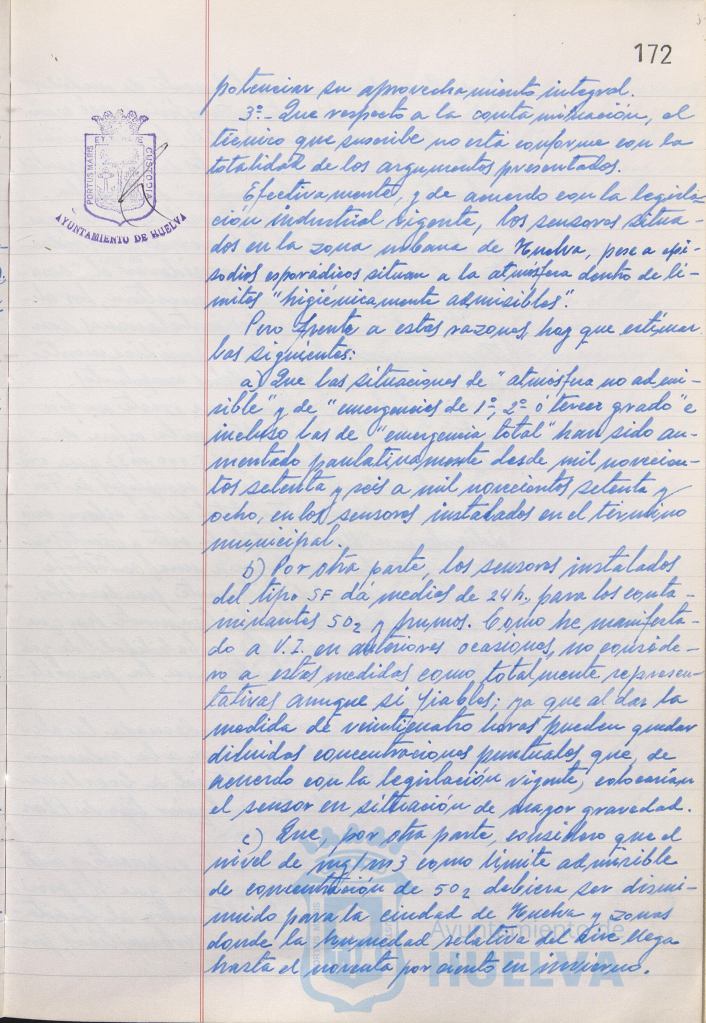 172
PORTUS MARIS
ET TERRAE
CUSTODIA
AYUNTAMIENTO DE HUELVA
potenciar su aprovechamiento integral.
3º.- Que respecto a la contaminación, el
técnico que suscribe no está conforme con la
totalidad de los argumentos presentados.
Efectivamente, y de acuerdo con la legisla-
ción industrial vigente, los sensores situa-
dos en la zona urbana de Huelva, pese a epi-
sodios esporádicos situan a la atmósfera dentro de lí-
mites "higiénicamente admisibles".
Pero frente a estas razones, hay que estimar
las siguientes:
a) Que las situaciones de "atmósfera no admi-
sible" y de "emergencias de 1º, 2º ó tercer grado" e
incluso las de "emergencia total" han sido au-
mentado paulatinamente desde mil novecien-
tos setenta y seis a mil novecientos setenta y
ocho, en los sensores instalados en el término
municipal.
b) Por otra parte, los sensores instalados
del tipo SF dá medias de 24 h, para los conta-
minantes SO2 y humos. Como he manifesta-
do a V.I. en anteriores ocasiones, no conside-
ro a estas medidas como totalmente represen-
tativas aunque sí fiables; ya que al dar la
medida de veinticuatro horas pueden quedar
diluidas concentraciones puntuales que, de
acuerdo con la legislación vigente, colocarían
el sensor en situación de mayor gravedad.
c) Que, por otra parte, considero que el
nivel de mg/m3 como límite admisible
de concentración de SO2 debiera ser dismi-
nuido para la ciudad de Huelva y zonas
donde la humedad relativa del aire llega
hasta el noventa por ciento en invierno.
Ayuntamiento de
HUELVA